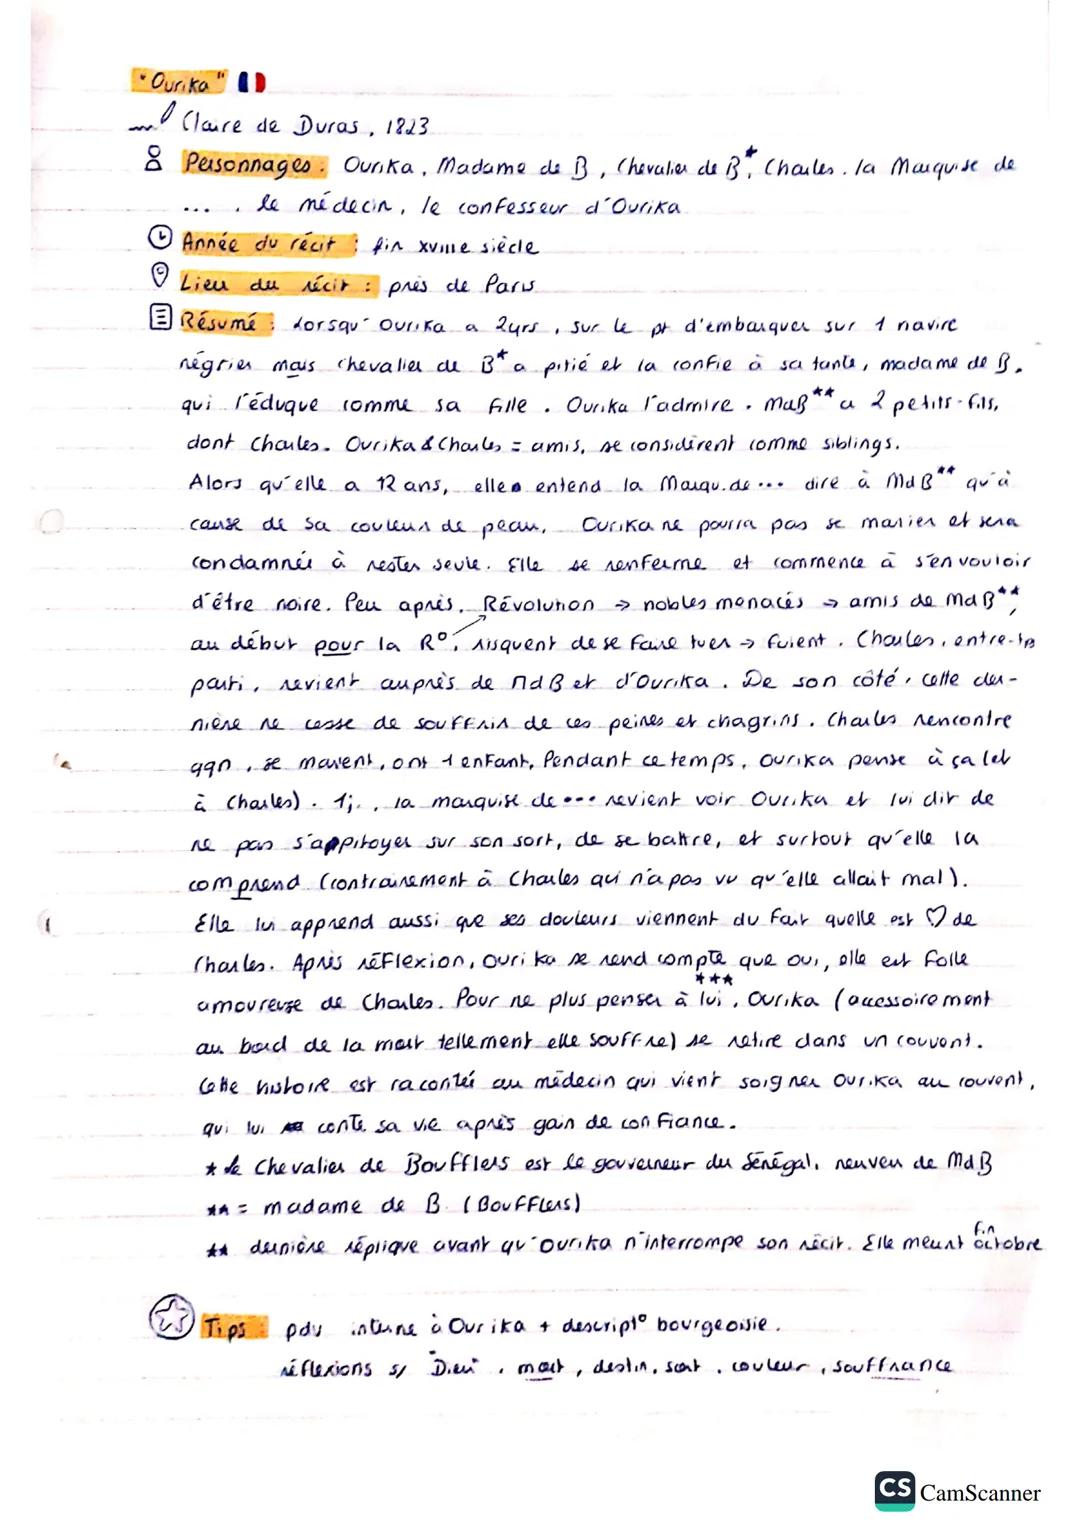 "Ourika"
Claire de Duras, 1823
Personnages : Ourika, Madame de B, Chevalier de B*, Charles, la Marquise de
..., le médecin, le confesseur d'Ourika
Année du récit : fin XVIIIe siècle
Lieu du récit : près de Paris
Résumé : Lorsqu'Ourika a 2yrs, sur le pt d'embarquer sur 1 navire
négrier mais chevalier de B* a pitié et la confie à sa tante, madame de B.
qui l'éduque comme sa fille. Ourika l'admire. MaB** a 2 petits-fils,
dont Charles. Ourika & Charles = amis, se considèrent comme siblings.
Alors qu'elle a 12 ans, elle entend la Marqu.de ... dire à MdB** qu'à
cause de sa couleur de peau, Ourika ne pourra pas se marier et sera
condamnée à rester seule. Elle se renferme et commence à s'en vouloir
d'être noire. Peu après, Révolution → nobles menacés → amis de MdB**,
au début pour la R°, risquent de se faire tuer → fuient. Charles, entre-tps
parti, revient auprès de MdB et d'Ourika. De son côté, cette der-
nière ne cesse de souffrir de ces peines et chagrins. Charles rencontre
qqn, se marient, ont 1 enfant, Pendant ce temps, Ourika pense à ça (et
à Charles). 1j., la marquise de ... revient voir Ourika et lui dit de
ne pas s'appitoyer sur son sort, de se battre, et surtout qu'elle la
comprend (contrairement à Charles qui n'a pas vu qu'elle allait mal).
Elle lui apprend aussi que ses douleurs viennent du fait quelle est ♡ de
Charles. Après réflexion, Ourika se rend compte que oui, elle est folle
amoureuse de Charles. Pour ne plus penser à lui***, Ourika (accessoirement
au bord de la mort tellement elle souffre) se retire dans un couvent.
Cette histoire est racontée au médecin qui vient soigner Ourika au couvent,
qui lui conte sa vie après gain de confiance.
* le Chevalier de Boufflers est le gouverneur du Sénégal, neuveu de MdB
** = madame de B. (Boufflers)
** dernière réplique avant qu'Ourika n'interrompe son récit. Elle meurt fin octobre
Tips : pdv interne à Ourika + descript° bourgeoisie.
réflexions s/ Dieu, mort, destin, sort, couleur, souffrance
CS CamScanner